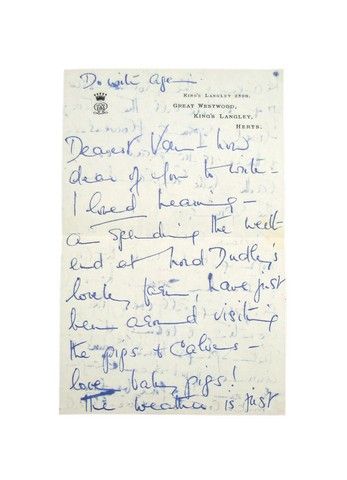 Do write again
KING'S LANGLEY 2898.
GREAT WESTWOOD,
KING'S LANGLEY,
HERTS.
Dearest Van I how
dear of you to write -
I loved hearing -
am spending the week-
end at Lord Dudley's
lovely farm, have just
been around visiting
the pigs & calves -
love baby pigs!
The weather is just